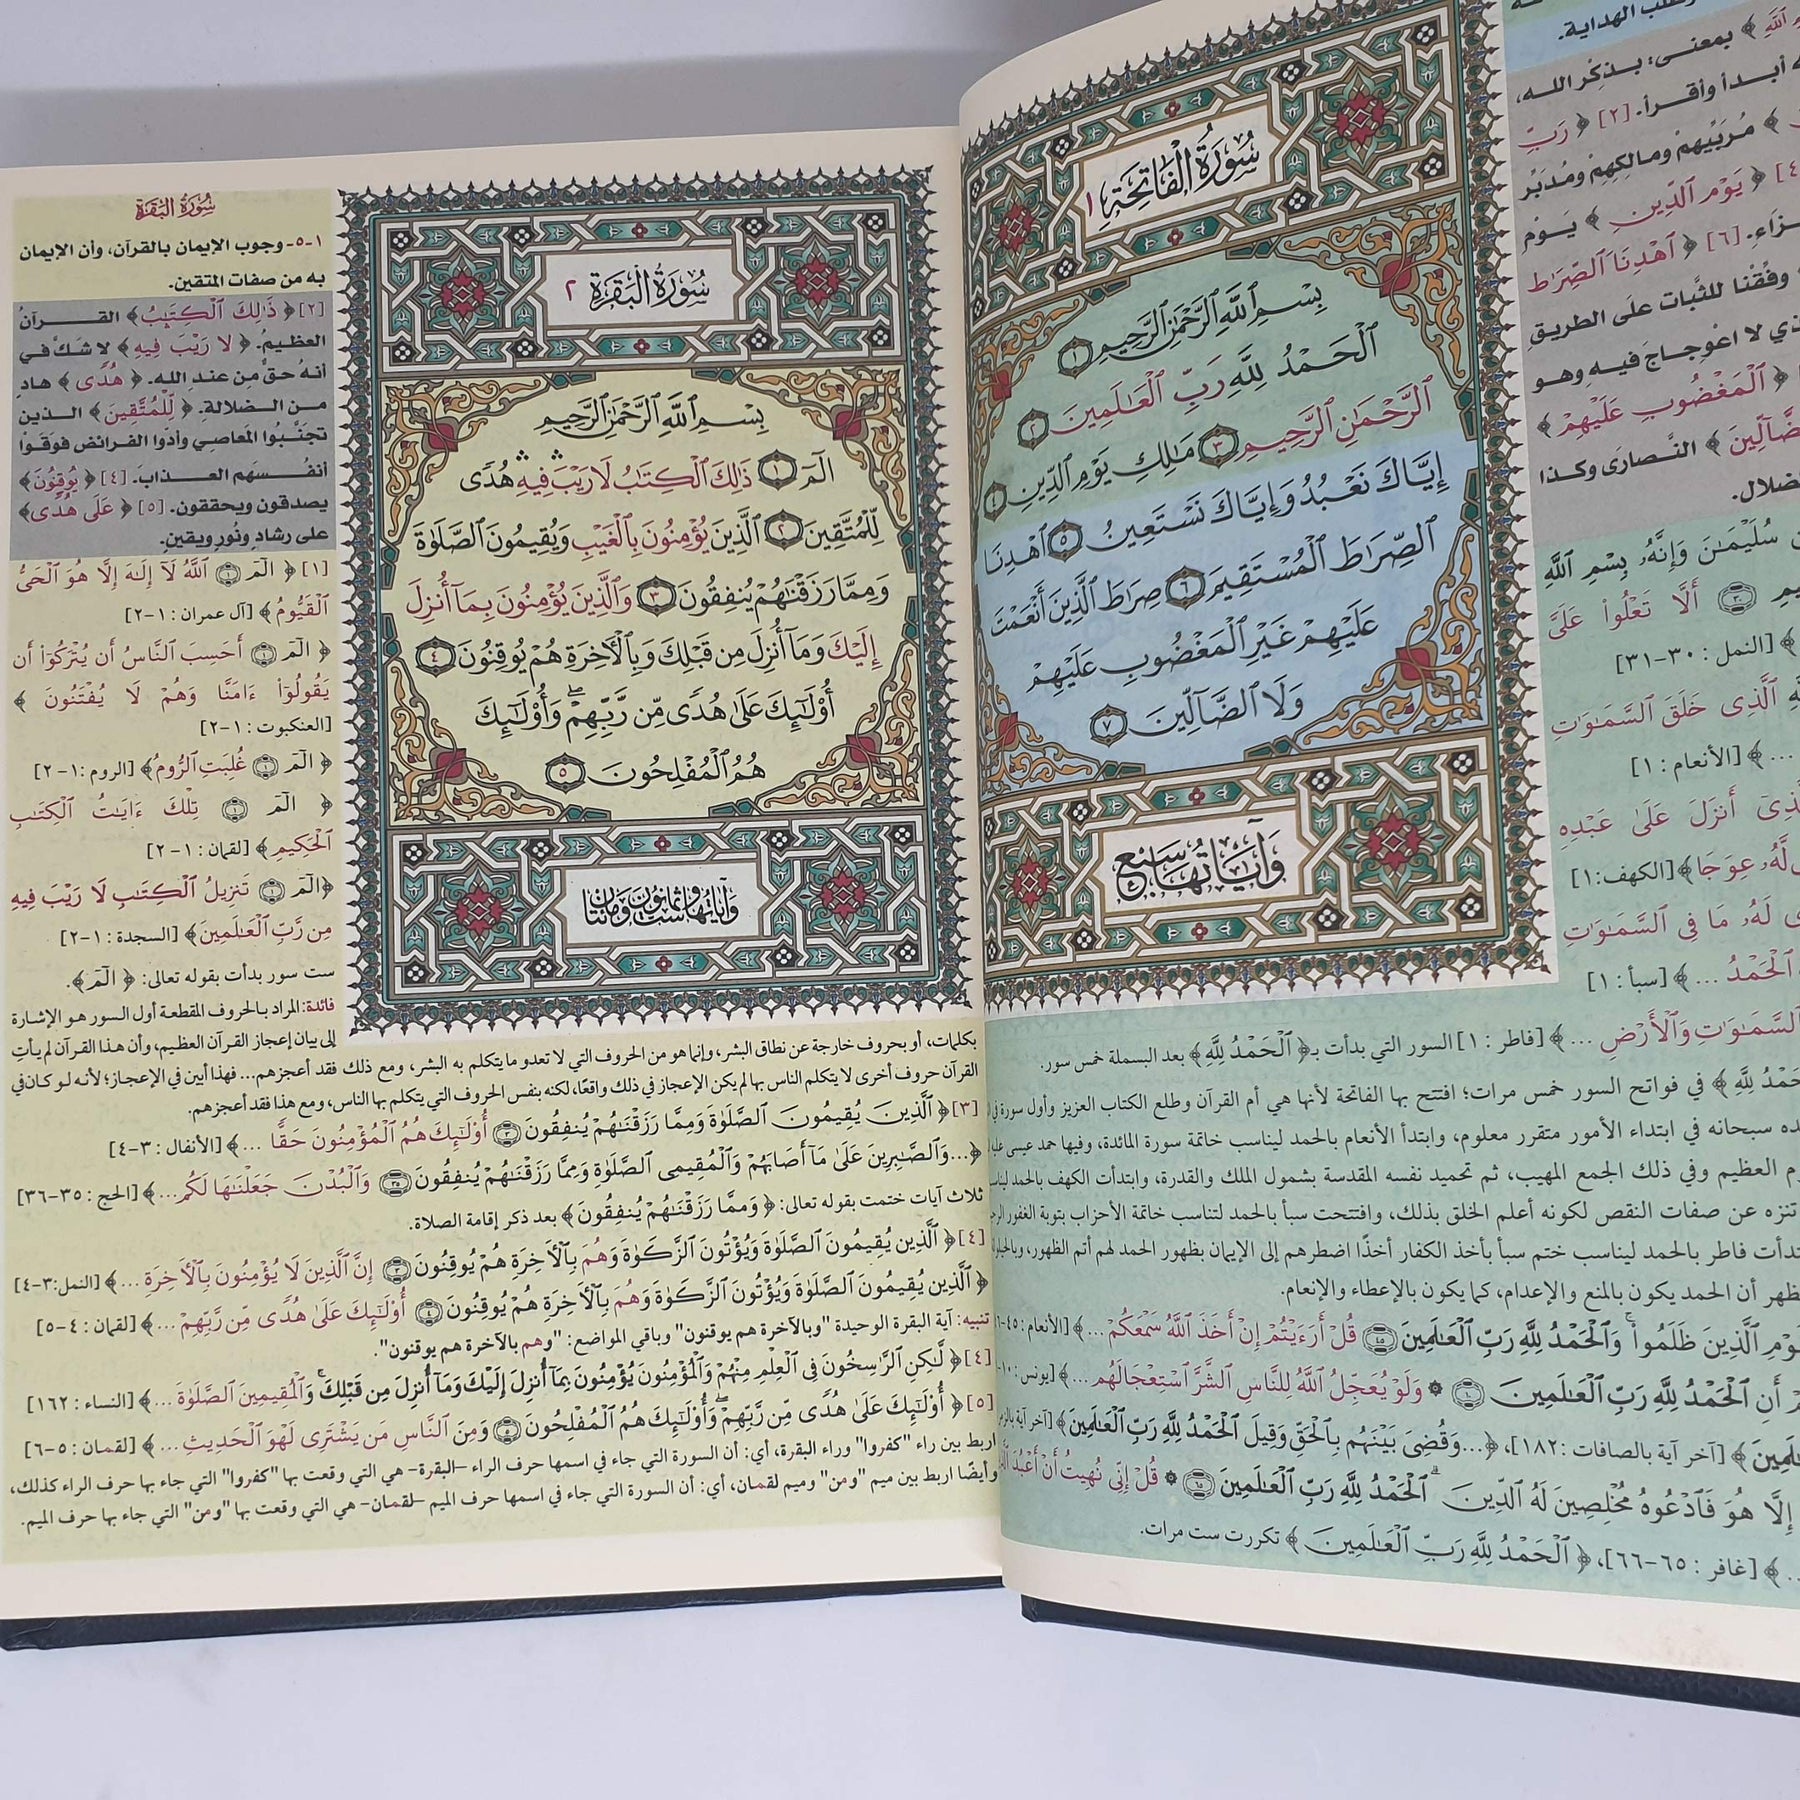 سُورَةُ الْفَاتِحَةِ ١
بِسْمِ ٱللَّهِ ٱلرَّحْمَٰنِ ٱلرَّحِيمِ ١
ٱلْحَمْدُ لِلَّهِ رَبِّ ٱلْعَٰلَمِينَ ٢
ٱلرَّحْمَٰنِ ٱلرَّحِيمِ ٣ مَٰلِكِ يَوْمِ ٱلدِّينِ ٤
إِيَّاكَ نَعْبُدُ وَإِيَّاكَ نَسْتَعِينُ ٥ ٱهْدِنَا
ٱلصِّرَٰطَ ٱلْمُسْتَقِيمَ ٦ صِرَٰطَ ٱلَّذِينَ أَنْعَمْتَ
عَلَيْهِمْ غَيْرِ ٱلْمَغْضُوبِ عَلَيْهِمْ
وَلَا ٱلضَّآلِّينَ ٧
وَآيَاتُهَا سَبْعٌ
طلب الهداية.
ٱللَّهِ ﴾ بمعنى: بذِكْر الله،
أبدأ وأقرأ. [٢] ﴿ رَبِّ
﴾ مُرَبِّيهِمْ ومالكِهِمْ ومُدَبِّر
﴿ يَوْمِ ٱلدِّينِ ﴾ يَوْمِ
[٦] ﴿ ٱهْدِنَا ٱلصِّرَٰطَ
وفِّقْنا للثَّبات على الطريقِ
لا اعْوِجاجَ فيه وهو
﴿ ٱلْمَغْضُوبِ عَلَيْهِمْ ﴾
النَّصارَى وكذا
سُلَيْمَٰنَ وَإِنَّهُۥ بِسْمِ ٱللَّهِ
أَلَّا تَعْلُوا۟ عَلَىَّ
﴾ [النمل : ٣٠-٣١]
ٱلَّذِى خَلَقَ ٱلسَّمَٰوَٰتِ
... ﴾ [الأنعام : ١]
أَنزَلَ عَلَىٰ عَبْدِهِ
لَّهُۥ عِوَجَا ﴾ [الكهف: ١]
لَهُۥ مَا فِى ٱلسَّمَٰوَٰتِ
ٱلْحَمْدُ ... ﴾ [سبأ : ١]
ٱلسَّمَٰوَٰتِ وَٱلْأَرْضِ ... ﴾ [فاطر : ١] السور التي بدأت بـ﴿ ٱلْحَمْدُ لِلَّهِ ﴾ بعد البسملة خمس سور.
لِلَّهِ ﴾ في فواتح السور خمس مرات؛ افتتح بها الفاتحة لأنها هي أم القرآن وطلع الكتاب العزيز وأول سورة في
سبحانه في ابتداء الأمور متقرر معلوم، وابتدأ الأنعام بالحمد ليناسب خاتمة سورة المائدة، وفيها حمد عيسى
العظيم وفي ذلك الجمع المهيب، ثم تحميد نفسه المقدسة بشمول الملك والقدرة، وابتدأت الكهف بالحمد
تنزه عن صفات النقص لكونه أعلم الخلق بذلك، وافتتحت سبأ بالحمد لتناسب خاتمة الأحزاب بتوبة الغفور
فاطر بالحمد ليناسب ختم سبأ بأخذ الكفار أخذًا اضطرهم إلى الإيمان بظهور الحمد لهم أتم الظهور،
أن الحمد يكون بالمنع والإعدام، كما يكون بالإعطاء والإنعام.
ٱلَّذِينَ ظَلَمُوا۟ وَٱلْحَمْدُ لِلَّهِ رَبِّ ٱلْعَٰلَمِينَ ٤٥ قُلْ أَرَءَيْتُمْ إِنْ أَخَذَ ٱللَّهُ سَمْعَكُمْ ... ﴾ [الأنعام:
أَنِ ٱلْحَمْدُ لِلَّهِ رَبِّ ٱلْعَٰلَمِينَ ١٠ ۞ وَلَوْ يُعَجِّلُ ٱللَّهُ لِلنَّاسِ ٱلشَّرَّ ٱسْتِعْجَالَهُم ... ﴾ [يونس:
[آخر آية بالصافات : ١٨٢]، ﴿ ...وَقُضِىَ بَيْنَهُم بِٱلْحَقِّ وَقِيلَ ٱلْحَمْدُ لِلَّهِ رَبِّ ٱلْعَٰلَمِينَ ﴾ [آخر آية
إِلَّا هُوَ فَٱدْعُوهُ مُخْلِصِينَ لَهُ ٱلدِّينَ ٱلْحَمْدُ لِلَّهِ رَبِّ ٱلْعَٰلَمِينَ ٦٥ ۞ قُلْ إِنِّى نُهِيتُ أَنْ أَعْبُدَ
... ﴾ [غافر : ٦٥-٦٦]، ﴿ ٱلْحَمْدُ لِلَّهِ رَبِّ ٱلْعَٰلَمِينَ ﴾ تكررت ست مرات.
سُورَةُ الْبَقَرَةِ ٢
بِسْمِ ٱللَّهِ ٱلرَّحْمَٰنِ ٱلرَّحِيمِ
الٓمٓ ١ ذَٰلِكَ ٱلْكِتَٰبُ لَا رَيْبَ ۛ فِيهِ ۛ هُدًى
لِّلْمُتَّقِينَ ٢ ٱلَّذِينَ يُؤْمِنُونَ بِٱلْغَيْبِ وَيُقِيمُونَ ٱلصَّلَوٰةَ
وَمِمَّا رَزَقْنَٰهُمْ يُنفِقُونَ ٣ وَٱلَّذِينَ يُؤْمِنُونَ بِمَآ أُنزِلَ
إِلَيْكَ وَمَآ أُنزِلَ مِن قَبْلِكَ وَبِٱلْأَخِرَةِ هُمْ يُوقِنُونَ ٤
أُو۟لَٰٓئِكَ عَلَىٰ هُدًى مِّن رَّبِّهِمْ ۖ وَأُو۟لَٰٓئِكَ
هُمُ ٱلْمُفْلِحُونَ ٥
وَآيَاتُهَا سِتٌّ وَثَمَانُونَ وَمِئَتَانِ
سُورَةُ البَقَرَةِ
١-٥- وجوب الإيمان بالقرآن، وأن الإيمان
به من صفات المتقين.
[٢] ﴿ ذَٰلِكَ ٱلْكِتَٰبُ ﴾ القرآنُ
العظيمُ. ﴿ لَا رَيْبَ فِيهِ ﴾ لا شَكَّ في
أنهُ حقٌّ مِن عندِ الله. ﴿ هُدًى ﴾ هادٍ
من الضلالة. ﴿ لِّلْمُتَّقِينَ ﴾ الذين
تجنَّبُوا المعاصِي وأدَّوا الفرائضَ فوَقَوْا
أنفُسَهم العذابَ. [٤] ﴿ يُوقِنُونَ ﴾
يصدقون ويحققون. [٥] ﴿ عَلَىٰ هُدًى ﴾
على رشادٍ ونُورٍ ويقينٍ.
[١] ﴿ الٓمٓ ١ ٱللَّهُ لَآ إِلَٰهَ إِلَّا هُوَ ٱلْحَىُّ
ٱلْقَيُّومُ ﴾ [آل عمران : ١-٢]
﴿ الٓمٓ ١ أَحَسِبَ ٱلنَّاسُ أَن يُتْرَكُوٓا۟ أَن
يَقُولُوٓا۟ ءَامَنَّا وَهُمْ لَا يُفْتَنُونَ ﴾
[العنكبوت : ١-٢]
﴿ الٓمٓ ١ غُلِبَتِ ٱلرُّومُ ﴾ [الروم : ١-٢]
﴿ الٓمٓ ١ تِلْكَ ءَايَٰتُ ٱلْكِتَٰبِ
ٱلْحَكِيمِ ﴾ [لقمان : ١-٢]
﴿ الٓمٓ ١ تَنزِيلُ ٱلْكِتَٰبِ لَا رَيْبَ فِيهِ
مِن رَّبِّ ٱلْعَٰلَمِينَ ﴾ [السجدة : ١-٢]
ست سور بدأت بقوله تعالى: ﴿ الٓمٓ ﴾.
فائدة: المراد بالحروف المقطعة أول السور هو الإشارة
إلى بيان إعجاز القرآن العظيم، وأن هذا القرآن لم يأتِ
بكلمات، أو بحروف خارجة عن نطاق البشر، وإنما هو من الحروف التي لا تعدو ما يتكلم به البشر، ومع ذلك فقد أعجزهم... فهذا أبين في الإعجاز؛ لأنه لو كان في
القرآن حروف أخرى لا يتكلم الناس بها لم يكن الإعجاز في ذلك واقعًا، لكنه بنفس الحروف التي يتكلم بها الناس، ومع هذا فقد أعجزهم.
[٣] ﴿ ٱلَّذِينَ يُقِيمُونَ ٱلصَّلَوٰةَ وَمِمَّا رَزَقْنَٰهُمْ يُنفِقُونَ ٣ أُو۟لَٰٓئِكَ هُمُ ٱلْمُؤْمِنُونَ حَقًّا ... ﴾ [الأنفال : ٣-٤]
﴿ ...وَٱلصَّٰبِرِينَ عَلَىٰ مَآ أَصَابَهُمْ وَٱلْمُقِيمِى ٱلصَّلَوٰةِ وَمِمَّا رَزَقْنَٰهُمْ يُنفِقُونَ ٣٥ وَٱلْبُدْنَ جَعَلْنَٰهَا لَكُم... ﴾ [الحج : ٣٥-٣٦]
ثلاث آيات ختمت بقوله تعالى: ﴿ وَمِمَّا رَزَقْنَٰهُمْ يُنفِقُونَ ﴾ بعد ذكر إقامة الصلاة.
[٤] ﴿ ٱلَّذِينَ يُقِيمُونَ ٱلصَّلَوٰةَ وَيُؤْتُونَ ٱلزَّكَوٰةَ وَهُم بِٱلْأَخِرَةِ هُمْ يُوقِنُونَ ٣ إِنَّ ٱلَّذِينَ لَا يُؤْمِنُونَ بِٱلْأَخِرَةِ ... ﴾ [النمل: ٣-٤]
﴿ ٱلَّذِينَ يُقِيمُونَ ٱلصَّلَوٰةَ وَيُؤْتُونَ ٱلزَّكَوٰةَ وَهُم بِٱلْأَخِرَةِ هُمْ يُوقِنُونَ ٤ أُو۟لَٰٓئِكَ عَلَىٰ هُدًى مِّن رَّبِّهِمْ ... ﴾ [لقمان : ٤-٥]
تنبيه: آية البقرة الوحيدة "وبالآخرة هم يوقنون" وباقي المواضع: "وهم بالآخرة هم يوقنون".
[٤] ﴿ لَّٰكِنِ ٱلرَّٰسِخُونَ فِى ٱلْعِلْمِ مِنْهُمْ وَٱلْمُؤْمِنُونَ يُؤْمِنُونَ بِمَآ أُنزِلَ إِلَيْكَ وَمَآ أُنزِلَ مِن قَبْلِكَ ۚ وَٱلْمُقِيمِينَ ٱلصَّلَوٰةَ ... ﴾ [النساء : ١٦٢]
[٥] ﴿ أُو۟لَٰٓئِكَ عَلَىٰ هُدًى مِّن رَّبِّهِمْ ۖ وَأُو۟لَٰٓئِكَ هُمُ ٱلْمُفْلِحُونَ ٥ وَمِنَ ٱلنَّاسِ مَن يَشْتَرِى لَهْوَ ٱلْحَدِيثِ ... ﴾ [لقمان : ٥-٦]
اربط بين راء "كفروا" وراء البقرة، أي: أن السورة التي جاء في اسمها حرف الراء -البقرة- هي التي وقعت بها "كفروا" التي جاء بها حرف الراء كذلك،
وأيضًا اربط بين ميم "ومن" وميم لقمان، أي: أن السورة التي جاء في اسمها حرف الميم -لقمان- هي التي وقعت بها "ومن" التي جاء بها حرف الميم.